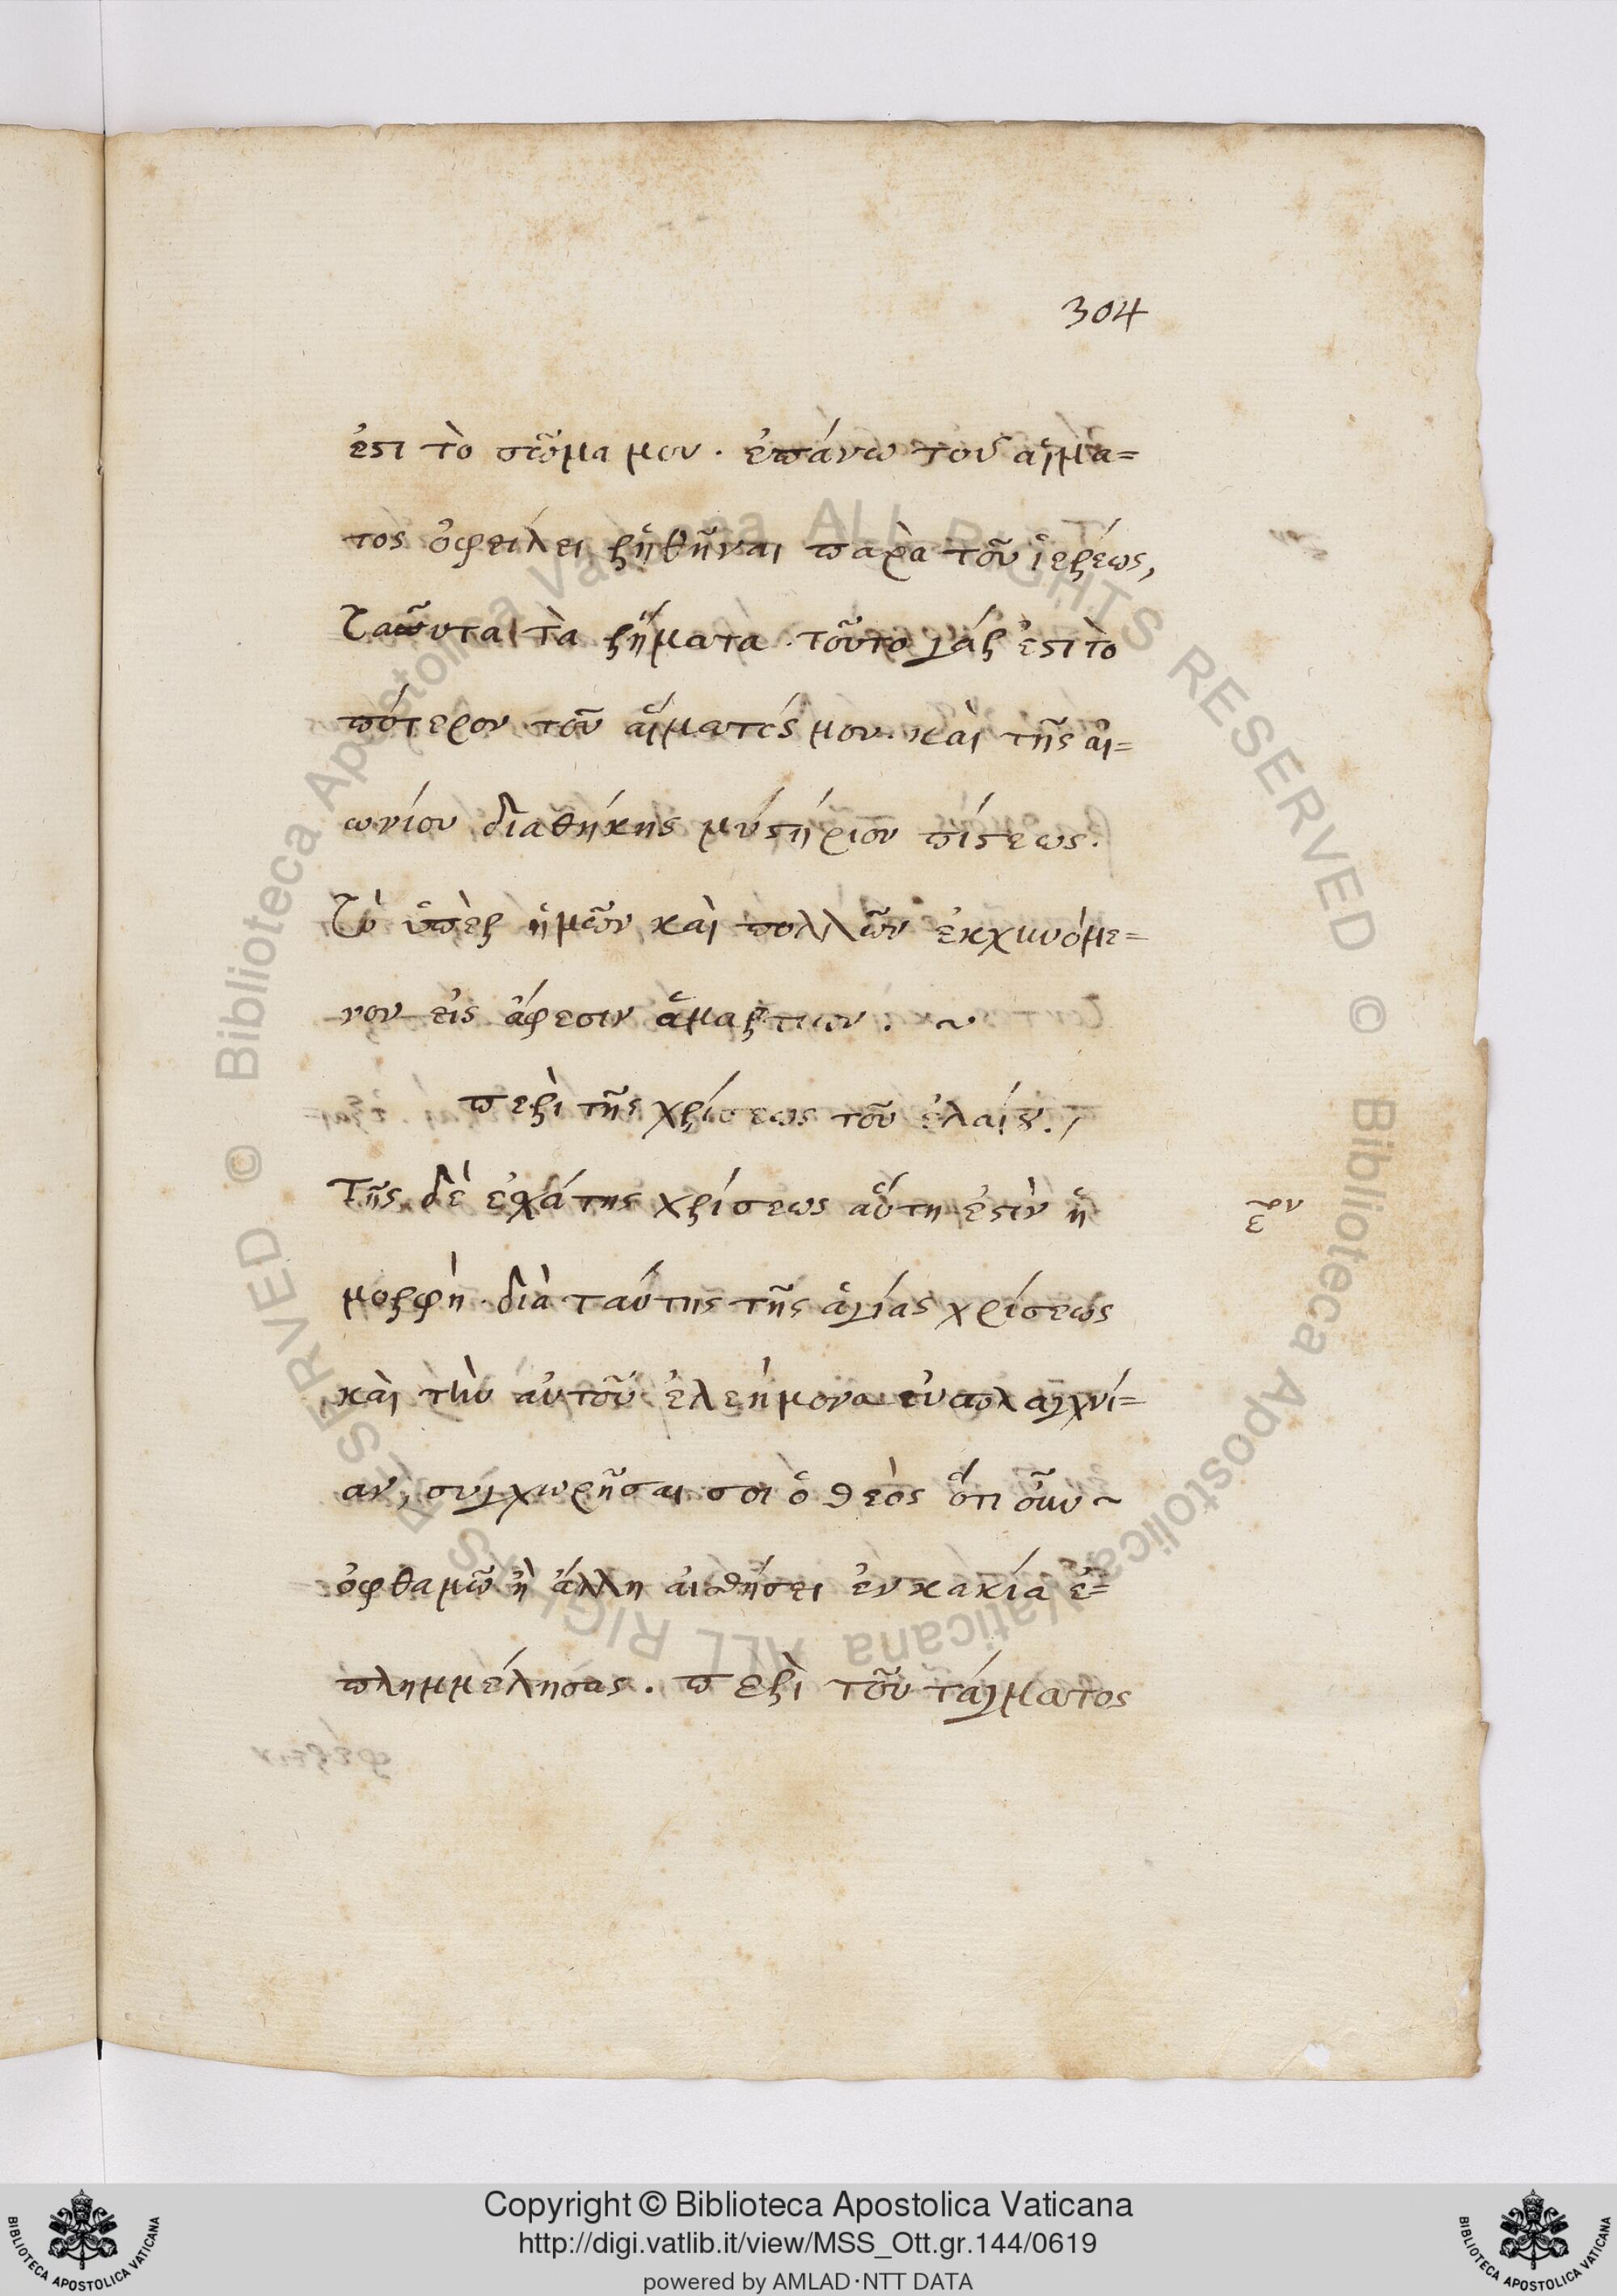 304
ἐστι τὸ σῶμα μου. ἐπάνω τοῦ αἵμα=
τος ὀφείλει ῥηθῆναι παρὰ τοῦ ἱερέως,
ταῦυτα τὰ ῥήματα. τοῦτο γάρ ἐστι τὸ
πότερον τοῦ αἵματός μου. καὶ τῆς αἰ=
ωνίου διαθήκης μύστήριον πίστεως.
τὸ ὑπὲρ ἡμῶν καὶ πολλῶν ἐκχυνόμε=
νον εἰς ἄφεσιν ἁμαρτιων. ~
περὶ τῆς χρίσεως τοῦ ἐλαίου./
Τῆς δὲ ἐσχάτης χρίσεως αὕτη ἐστὶν ἡ
μορφὴ. διὰ ταύτης τῆς ἁγίας χρίσεως
καὶ τὴν αὐτοῦ ἐλεήμονα εὐσπλαγχνί=
αν, συγχωρῆσαι σοι ὁ θεὸς ὅτι οὖν ~
ὀφθαμῶ ἢ ἄλλη αἰσθήσει ἐν κακία ἐ=
πλημμέλησας. περὶ τοῦ τάγματος
Copyright © Biblioteca Apostolica Vaticana
http://digi.vatlib.it/view/MSS_Ott.gr.144/0619
powered by AMLAD·NTT DATA
BIBLIOTECA APOSTOLICA VATICANA
BIBLIOTECA APOSTOLICA VATICANA
© Biblioteca Apostolica Vaticana ALL RIGHTS RESERVED © Biblioteca Apostolica Vaticana ALL RIGHTS RESERVED